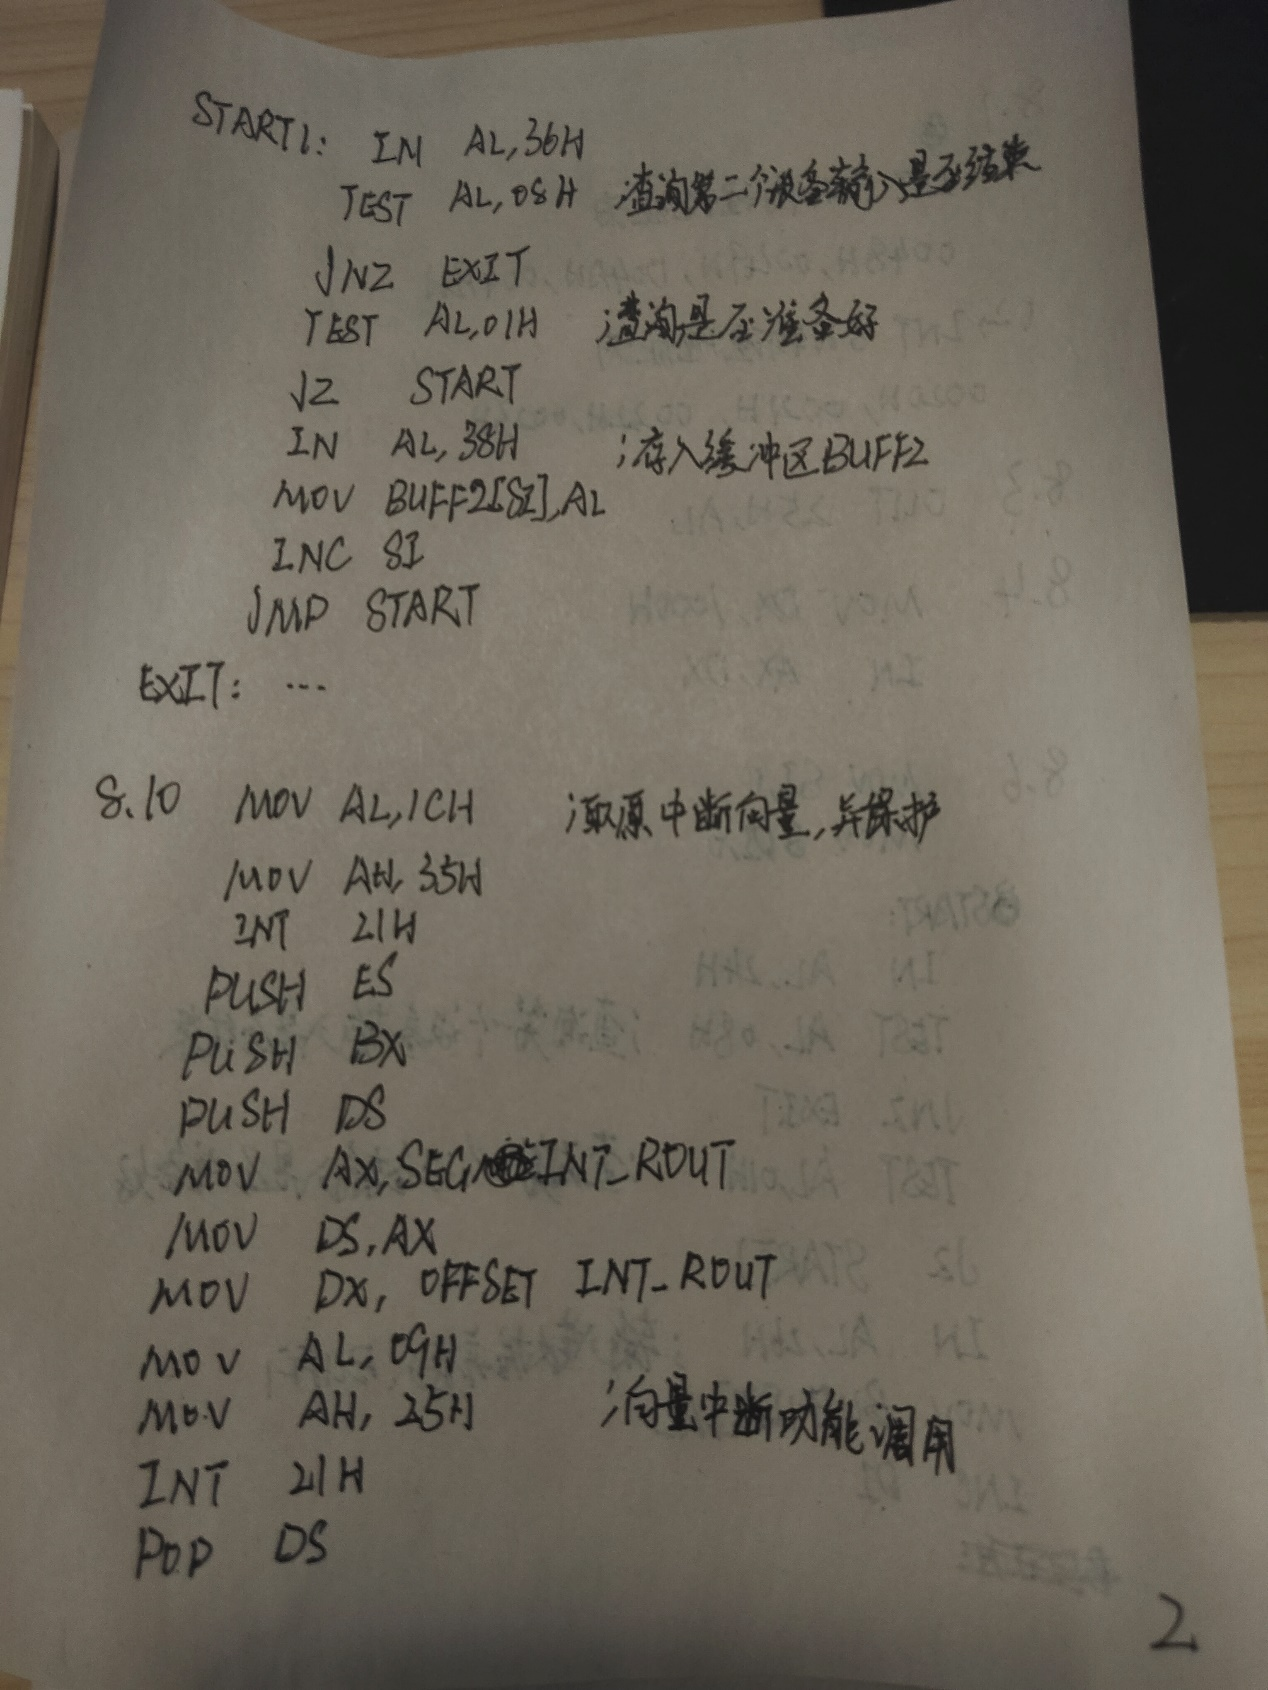 START1: IN AL,36H
TEST AL,08H ;查询第二个设备输入是否结束
JNZ EXIT
TEST AL,01H ;查询是否准备好
JZ START
IN AL,38H ;存入缓冲区BUFF2
MOV BUFF2[SI],AL
INC SI
JMP START
EXIT: ...
8.10 MOV AL,1CH ;取原中断向量,并保护
MOV AH,35H
INT 21H
PUSH ES
PUSH BX
PUSH DS
MOV AX,SEG INT_ROUT
MOV DS,AX
MOV DX, OFFSET INT_ROUT
MOV AL,09H
MOV AH,25H ;向量中断功能调用
INT 21H
POP DS
2